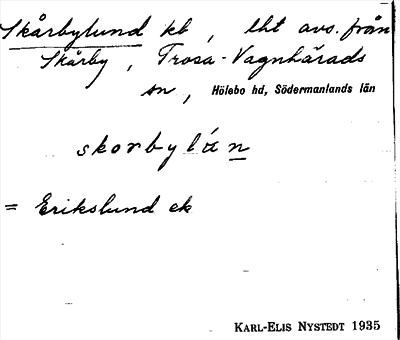 Skårbylund kb, lht avs. från
Skårby, Trosa-Vagnhärads
sn, Hölebo hd, Södermanlands län
skorbylún
= Erikslund ek
KARL-ELIS NYSTEDT 1935